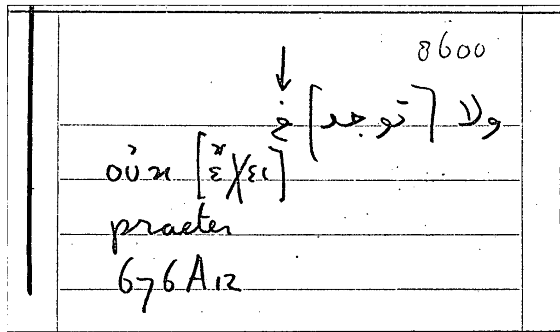 8600
ولا [توجد] في
οὐκ [ἔχει]
praeter
676 A 12